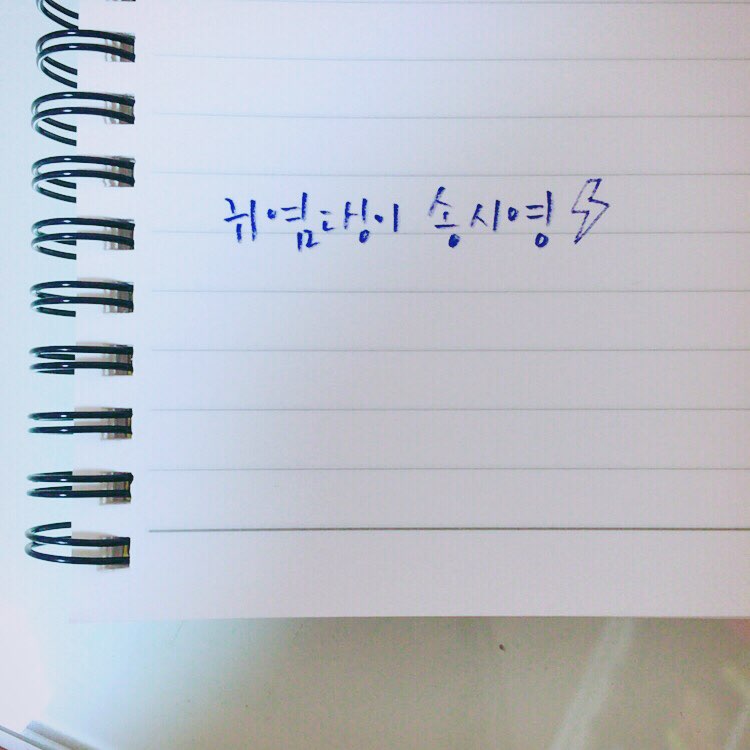 귀염댕이 송시영